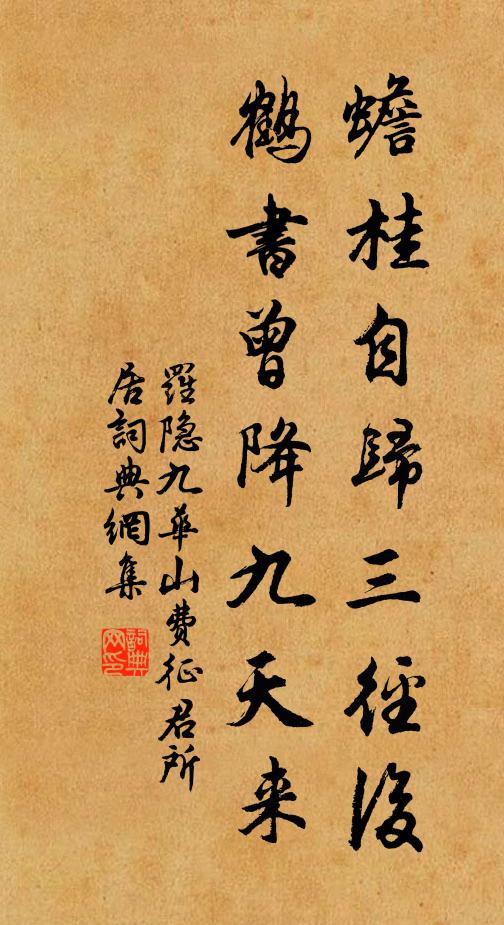 蟾桂自歸三徑後
鶴書曾降九天来
羅隐九華山費征君所
居詞典網集
詞典网印